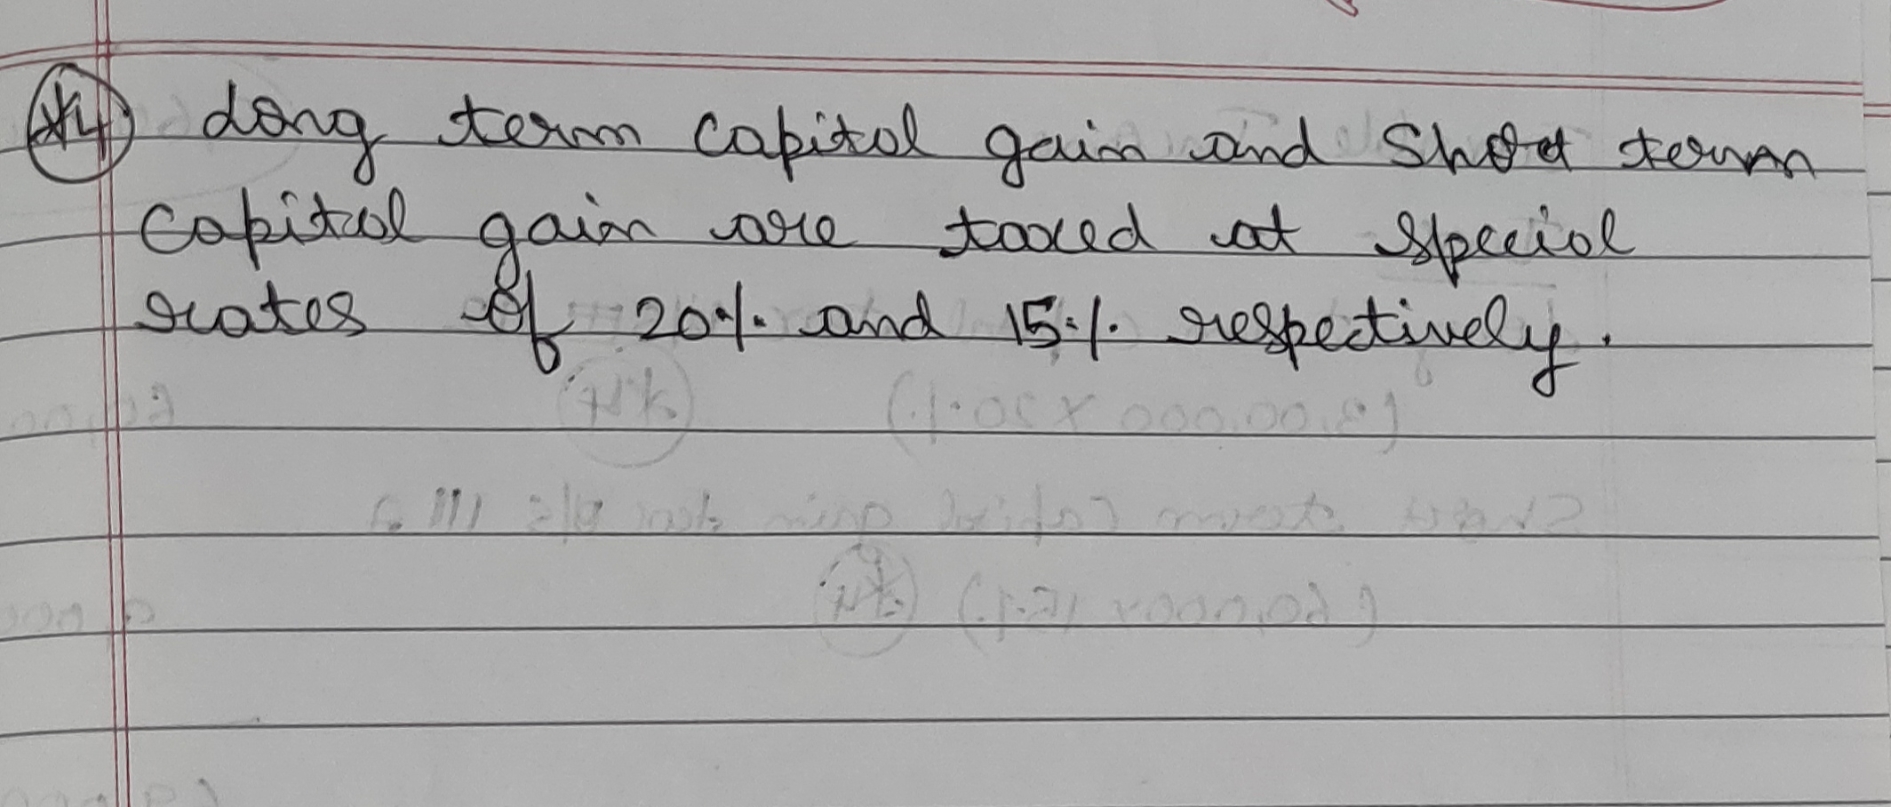 *4 Long term capital gain and Short term
capital gain are taxed at special
rates of 20% and 15% respectively.